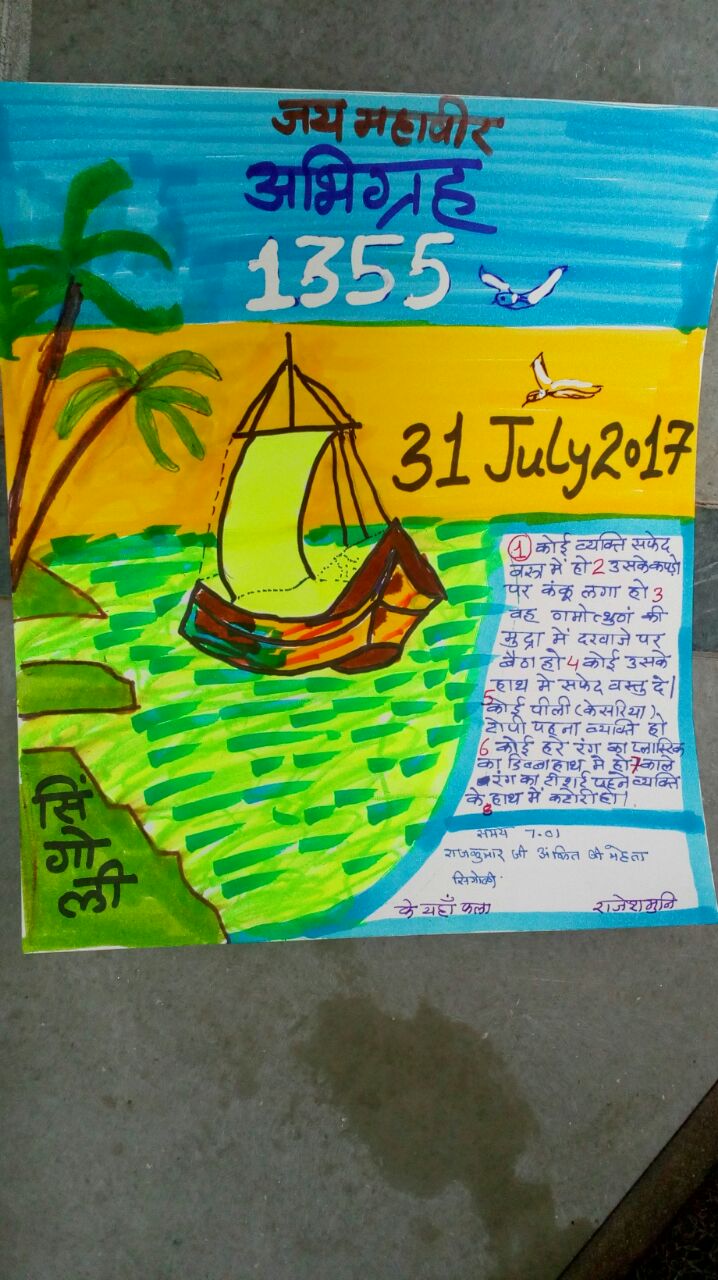 जय महावीर
अभिग्रह
1355
31 July 2017
1 कोई व्यक्ति सफेद
वस्त्र में हो 2 उसके कपड़ो
पर कंकू लगा हो 3
वह नमोत्थुणं की
मुद्रा में दरवाजे पर
बैठा हो 4 कोई उसके
हाथ में सफेद वस्तु दे।
5 कोई पीली (केसरिया)
टोपी पहना व्यक्ति हो
6 कोई हरे रंग का प्लास्टिक
का डिब्बा हाथ में हो 7 काले
रंग का टी शर्ट पहने व्यक्ति
के 8 हाथ में कटोरी हो।
समय 7.01
राजकुमार जी अंकित जी मेहता
सिंगोली
के यहाँ फला
राजेशमुनि
सिंगोली